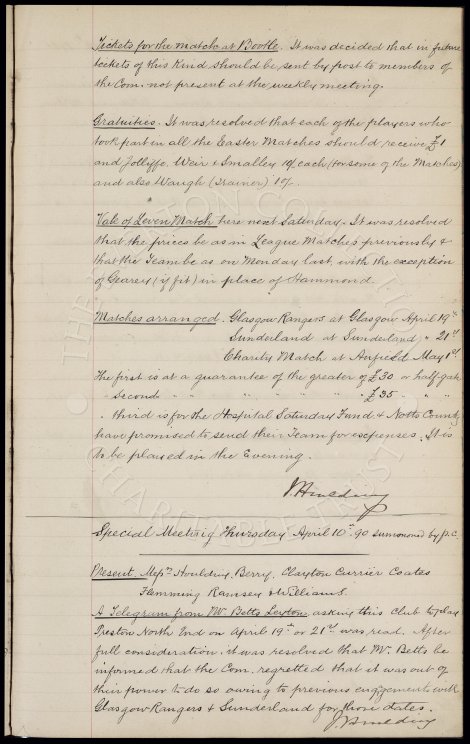 Tickets for the match at Bootle. It was decided that in future
tickets of this kind should be sent by post to members of
the Com. not present at the weekly meeting.
Gratuities. It was resolved that each of the players who
took part in all the Easter Matches should receive £1
and Jolliffe, Weir & Smalley 10/- each (for some of the Matches)
and also Waugh (Trainer) 10/-
Vale of Leven Match here next Saturday. It was resolved
that the prices be as in League Matches previously &
that the Team be as on Monday last, with the exception
of Geary (if fit) in place of Hammond.
Matches arranged. Glasgow Rangers at Glasgow April 19th
Sunderland at Sunderland " 21st
Charity Match at Anfield May 1st
The first is at a guarantee of the greater of £30 or half gate
" Second " " " " " " £35 " "
" third is for the Hospital Saturday Fund & Notts County
have promised to send their Team for expenses. It is
to be played in the Evening.
J. Houlding
Special Meeting Thursday April 10th 90 summoned by p.c.
Present. Messrs Houlding, Berry, Clayton Currier Coates
Flemming Ramsey & Williams.
A Telegram from Mr. Betts Leyton, asking this Club to play
Preston North End on April 19th or 21st was read. After
full consideration it was resolved that Mr. Betts be
informed that the Com. regretted that it was out of
their power to do so owing to previous engagements with
Glasgow Rangers & Sunderland for those dates.
J Houlding
THE EVERTON COLLECTION
CHARITABLE TRUST